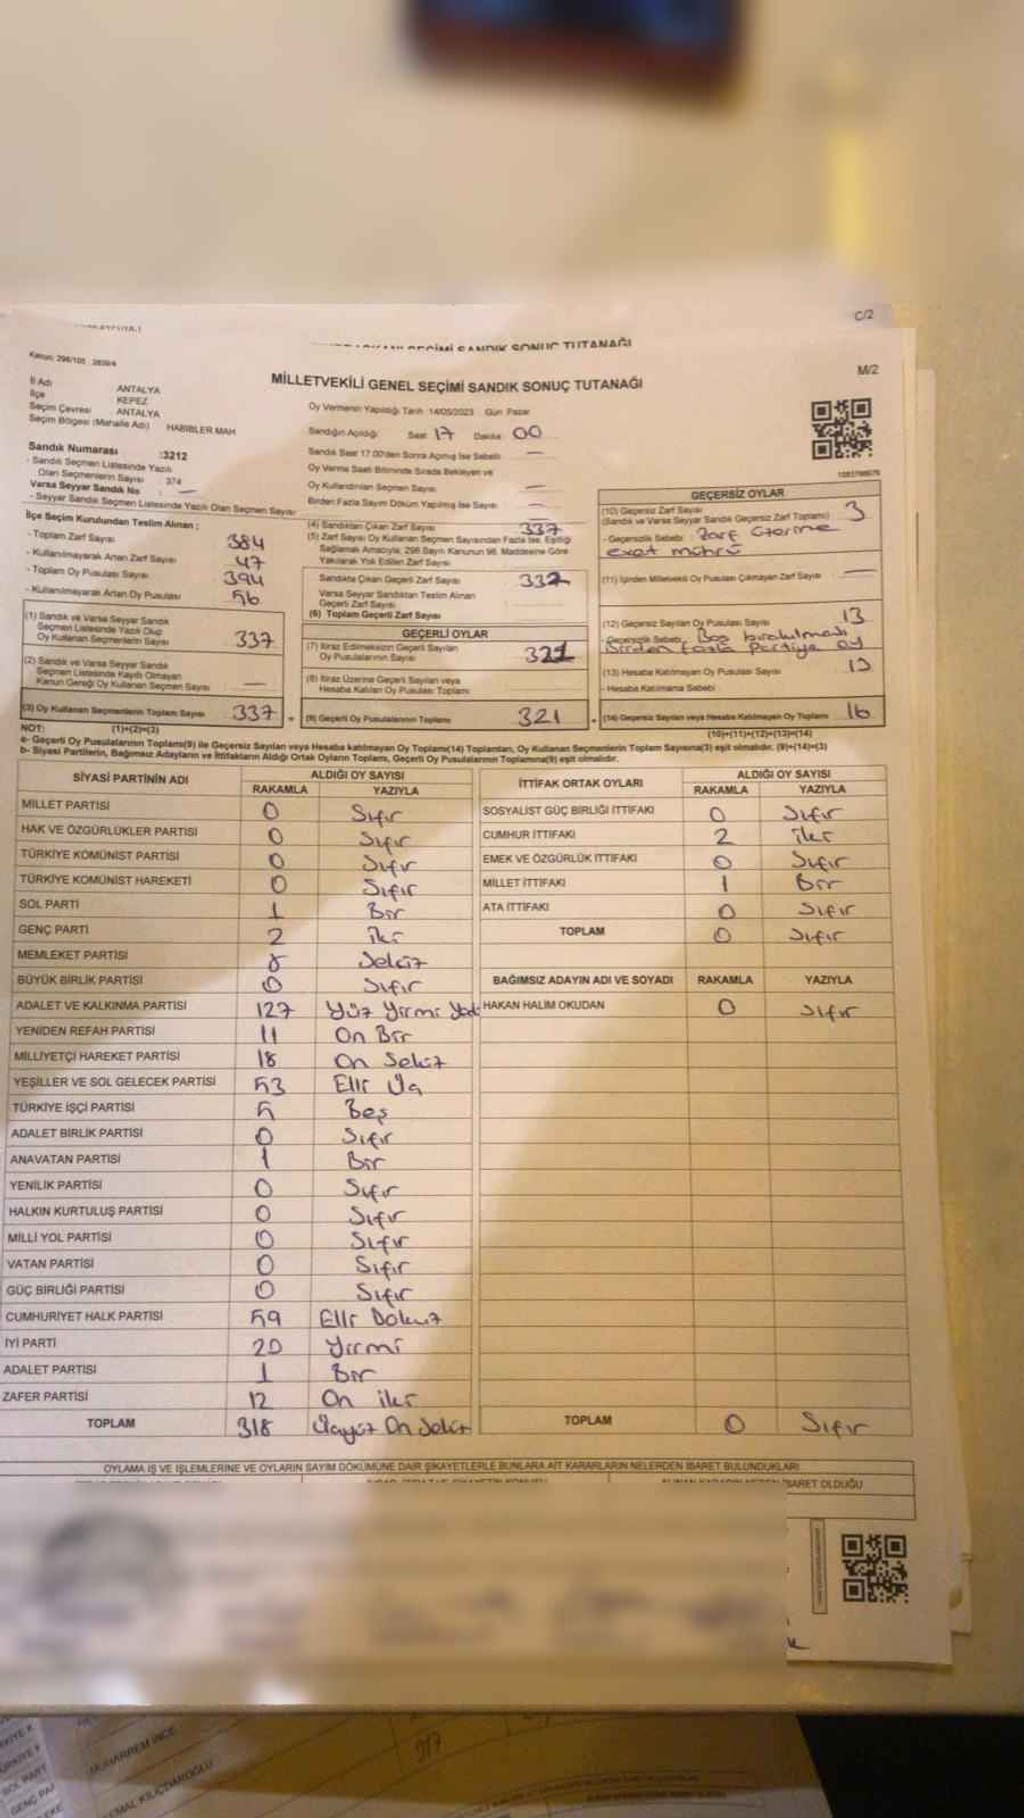 C/2
SANDIK SONUÇ TUTANAĞI
M/2
MİLLETVEKİLİ GENEL SEÇİMİ SANDIK SONUÇ TUTANAĞI
İl Adı ANTALYA
İlçe KEPEZ
Seçim Çevresi ANTALYA
Seçim Bölgesi (Mahalle Adı) HABİBLER MAH
Oy Vermenin Yapıldığı Tarih 14/05/2023 Gün Pazar
Sandığın Açıldığı Saat 17 Dakika 00
Sandık Saat 17.00'den Sonra Açılmış İse Sebebi —
Oy Verme Saati Bitiminde Sırada Bekleyen ve
Oy Kullandırılan Seçmen Sayısı —
Birden Fazla Sayım Döküm Yapılmış İse Sayısı —
Sandık Numarası :3212
- Sandık Seçmen Listesinde Yazılı
Olan Seçmenlerin Sayısı 374
Varsa Seyyar Sandık No : —
- Seyyar Sandık Seçmen Listesinde Yazılı Olan Seçmen Sayısı —
İlçe Seçim Kurulundan Teslim Alınan :
- Toplam Zarf Sayısı 384
- Kullanılmayarak Artan Zarf Sayısı 47
- Toplam Oy Pusulası Sayısı 394
- Kullanılmayarak Artan Oy Pusulası 56
(1) Sandık ve Varsa Seyyar Sandık
Seçmen Listesinde Yazılı Olup
Oy Kullanan Seçmenlerin Sayısı 337
(2) Sandık ve Varsa Seyyar Sandık
Seçmen Listesinde Kayıtlı Olmayan
Kanun Gereği Oy Kullanan Seçmen Sayısı —
(3) Oy Kullanan Seçmenlerin Toplam Sayısı 337
(1)+(2)=(3)
(4) Sandıktan Çıkan Zarf Sayısı 337
(5) Zarf Sayısı Oy Kullanan Seçmen Sayısından Fazla İse, Eşitliği
Sağlamak Amacıyla; 298 Sayılı Kanunun 98. Maddesine Göre
Yakılarak Yok Edilen Zarf Sayısı
Sandıkta Çıkan Geçerli Zarf Sayısı
Varsa Seyyar Sandıktan Teslim Alınan
Geçerli Zarf Sayısı
(6) Toplam Geçerli Zarf Sayısı
GEÇERLİ OYLAR
(7) İtiraz Edilmeksizin Geçerli Sayılan
Oy Pusulalarının Sayısı 321
(8) İtiraz Üzerine Geçerli Sayılan veya
Hesaba Katılan Oy Pusulası Toplamı
(9) Geçerli Oy Pusulalarının Toplamı 321
GEÇERSİZ OYLAR
(10) Geçersiz Zarf Sayısı
(Sandık ve Varsa Seyyar Sandık Geçersiz Zarf Toplamı) 3
- Geçersizlik Sebebi Zarf Üzerine
evet mührü
(11) İçinden Milletvekili Oy Pusulası Çıkmayan Zarf Sayısı —
(12) Geçersiz Sayılan Oy Pusulası Sayısı 13
- Geçersizlik Sebebi Boş bırakılması
Birden fazla partiye oy
(13) Hesaba Katılmayan Oy Pusulası Sayısı
- Hesaba Katılmama Sebebi
(14) Geçersiz Sayılan veya Hesaba Katılmayan Oy Toplamı 16
(10)+(11)+(12)+(13)=(14)
NOT:
a- Geçerli Oy Pusulalarının Toplamı(9) ile Geçersiz Sayılan veya Hesaba katılmayan Oy Toplamı(14) Toplamları, Oy Kullanan Seçmenlerin Toplam Sayısına(3) eşit olmalıdır. (9)+(14)=(3)
b- Siyasi Partilerin, Bağımsız Adayların ve İttifakların Aldığı Ortak Oyların Toplamı, Geçerli Oy Pusulalarının Toplamına(9) eşit olmalıdır.
SİYASİ PARTİNİN ADI ALDIĞI OY SAYISI
RAKAMLA YAZIYLA
MİLLET PARTİSİ 0 Sıfır
HAK VE ÖZGÜRLÜKLER PARTİSİ 0 Sıfır
TÜRKİYE KOMÜNİST PARTİSİ 0 Sıfır
TÜRKİYE KOMÜNİST HAREKETİ 0 Sıfır
SOL PARTİ 1 Bir
GENÇ PARTİ 2 iki
MEMLEKET PARTİSİ 8 Sekiz
BÜYÜK BİRLİK PARTİSİ 0 Sıfır
ADALET VE KALKINMA PARTİSİ 127 Yüz Yirmi Yedi
YENİDEN REFAH PARTİSİ 11 On Bir
MİLLİYETÇİ HAREKET PARTİSİ 18 On Sekiz
YEŞİLLER VE SOL GELECEK PARTİSİ 53 Elli Üç
TÜRKİYE İŞÇİ PARTİSİ 5 Beş
ADALET BİRLİK PARTİSİ 0 Sıfır
ANAVATAN PARTİSİ 1 Bir
YENİLİK PARTİSİ 0 Sıfır
HALKIN KURTULUŞ PARTİSİ 0 Sıfır
MİLLİ YOL PARTİSİ 0 Sıfır
VATAN PARTİSİ 0 Sıfır
GÜÇ BİRLİĞİ PARTİSİ 0 Sıfır
CUMHURİYET HALK PARTİSİ 59 Elli Dokuz
İYİ PARTİ 20 Yirmi
ADALET PARTİSİ 1 Bir
ZAFER PARTİSİ 12 On iki
TOPLAM 318 Üçyüz On Sekiz
İTTİFAK ORTAK OYLARI ALDIĞI OY SAYISI
RAKAMLA YAZIYLA
SOSYALİST GÜÇ BİRLİĞİ İTTİFAKI 0 Sıfır
CUMHUR İTTİFAKI 2 iki
EMEK VE ÖZGÜRLÜK İTTİFAKI 0 Sıfır
MİLLET İTTİFAKI 1 Bir
ATA İTTİFAKI 0 Sıfır
TOPLAM 0 Sıfır
BAĞIMSIZ ADAYIN ADI VE SOYADI RAKAMLA YAZIYLA
HAKAN HALİM OKUDAN 0 Sıfır
TOPLAM 0 Sıfır
OYLAMA İŞ VE İŞLEMLERİNE VE OYLARIN SAYIM DÖKÜMÜNE DAİR ŞİKAYETLERLE BUNLARA AİT KARARLARIN NELERDEN İBARET BULUNDUKLARI
İBARET OLDUĞU
MUHARREM İNCE
KEMAL KILIÇDAROĞLU
SOL PARTİ